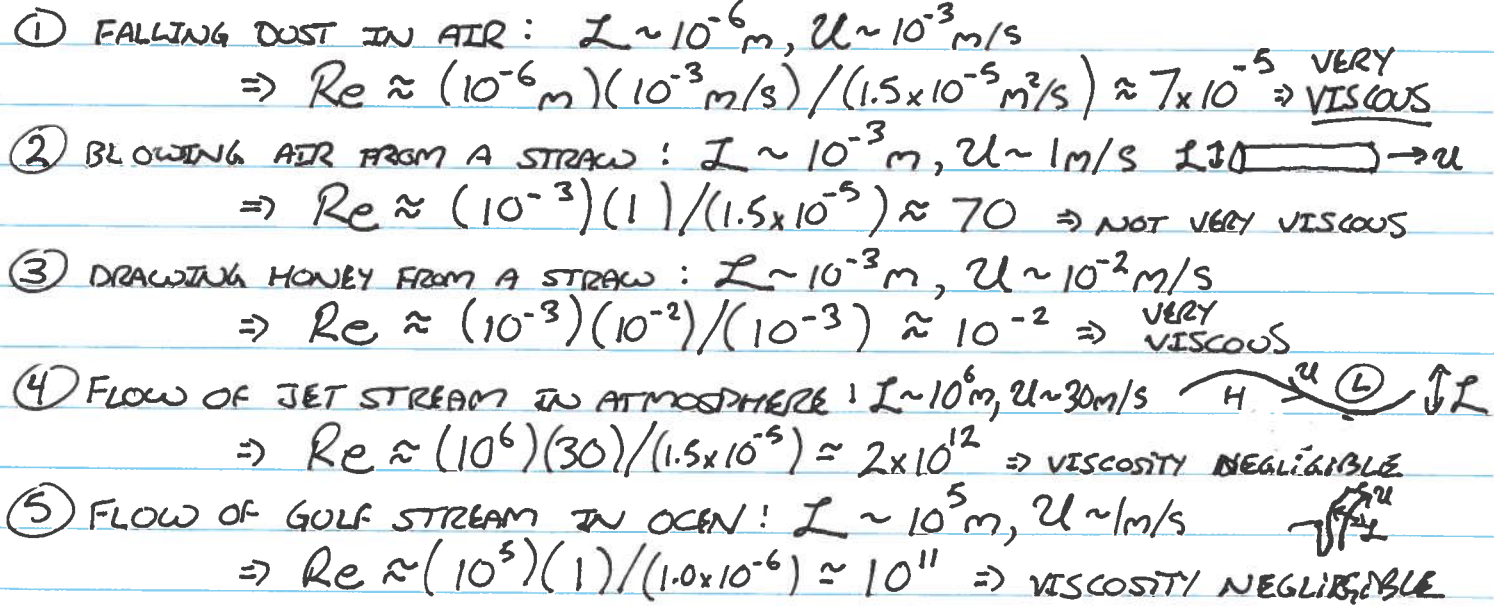 ① FALLING DUST IN AIR : L ~ 10⁻⁶ m, U ~ 10⁻³ m/s
⇒ Re ≈ (10⁻⁶ m)(10⁻³ m/s)/(1.5x10⁻⁵ m²/s) ≈ 7x10⁻⁵ ⇒ VERY VISCOUS
② BLOWING AIR FROM A STRAW : L ~ 10⁻³ m, U ~ 1m/s L↕ → U
⇒ Re ≈ (10⁻³)(1)/(1.5x10⁻⁵) ≈ 70 ⇒ NOT VERY VISCOUS
③ DRAWING HONEY FROM A STRAW : L ~ 10⁻³ m, U ~ 10⁻² m/s
⇒ Re ≈ (10⁻³)(10⁻²)/(10⁻³) ≈ 10⁻² ⇒ VERY VISCOUS
④ FLOW OF JET STREAM IN ATMOSPHERE : L ~ 10⁶ m, U ~ 30m/s H U L ↕L
⇒ Re ≈ (10⁶)(30)/(1.5x10⁻⁵) ≃ 2x10¹² ⇒ VISCOSITY NEGLIGIBLE
⑤ FLOW OF GULF STREAM IN OCEN : L ~ 10⁵ m, U ~ 1m/s U L
⇒ Re ≈ (10⁵)(1)/(1.0x10⁻⁶) ≃ 10¹¹ ⇒ VISCOSITY NEGLIGIBLE